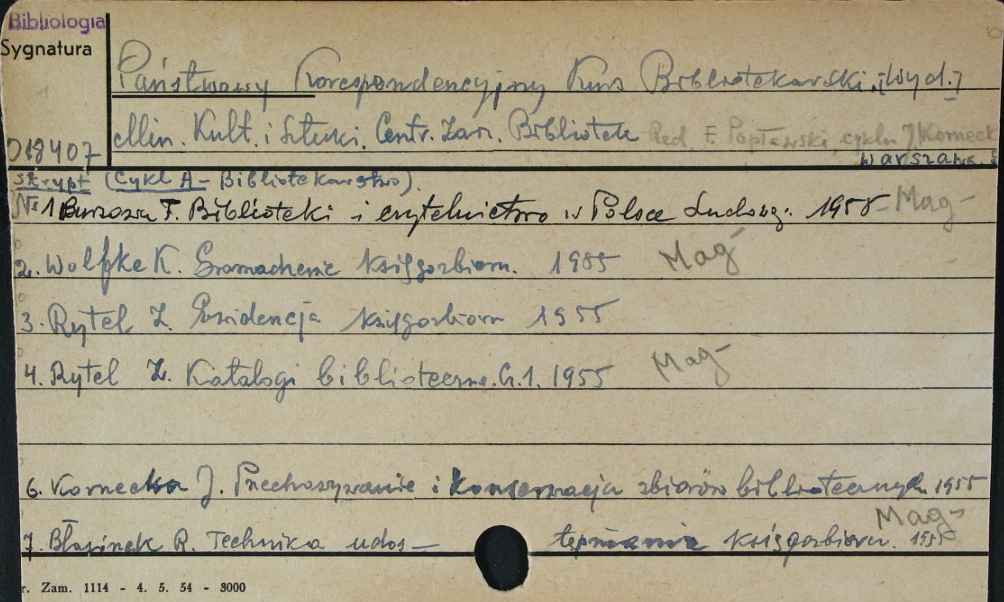 Bibliologia
Sygnatura
Państwowy Korespondencyjny Kurs Bibliotekarski. [Wyd.]
Min. Kult. i Sztuki. Centr. Zarz. Bibliotek Red. F. Popławski, cyklu J. Kornecka
D18407
Warszawa.
Skrypt (Cykl A - Bibliotekarstwo).
Nr 1 Bursowa F. Biblioteki i czytelnictwo w Polsce Ludowej. 1955 - Mag -
2. Wolfke K. Gromadzenie księgozbioru. 1955 Mag
3. Rytel Z. Ewidencja księgozbioru 1955
4. Rytel Z. Katalogi biblioteczne. Cz. 1. 1955 Mag -
6. Kornecka J. Przechowywanie i konserwacja zbiorów bibliotecznych 1955
Mag -
7. Błasinek R. Technika udos- tępniania księgozbioru. 1955
r. Zam. 1114 - 4. 5. 54 - 3000